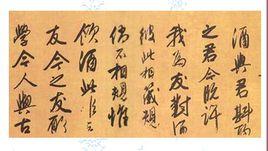 酒與君斟酌
之君今既許
我為友對酒
彼此相箴規
倘不相規惟
飲酒此㫮之
友今之友酌
學今人與古